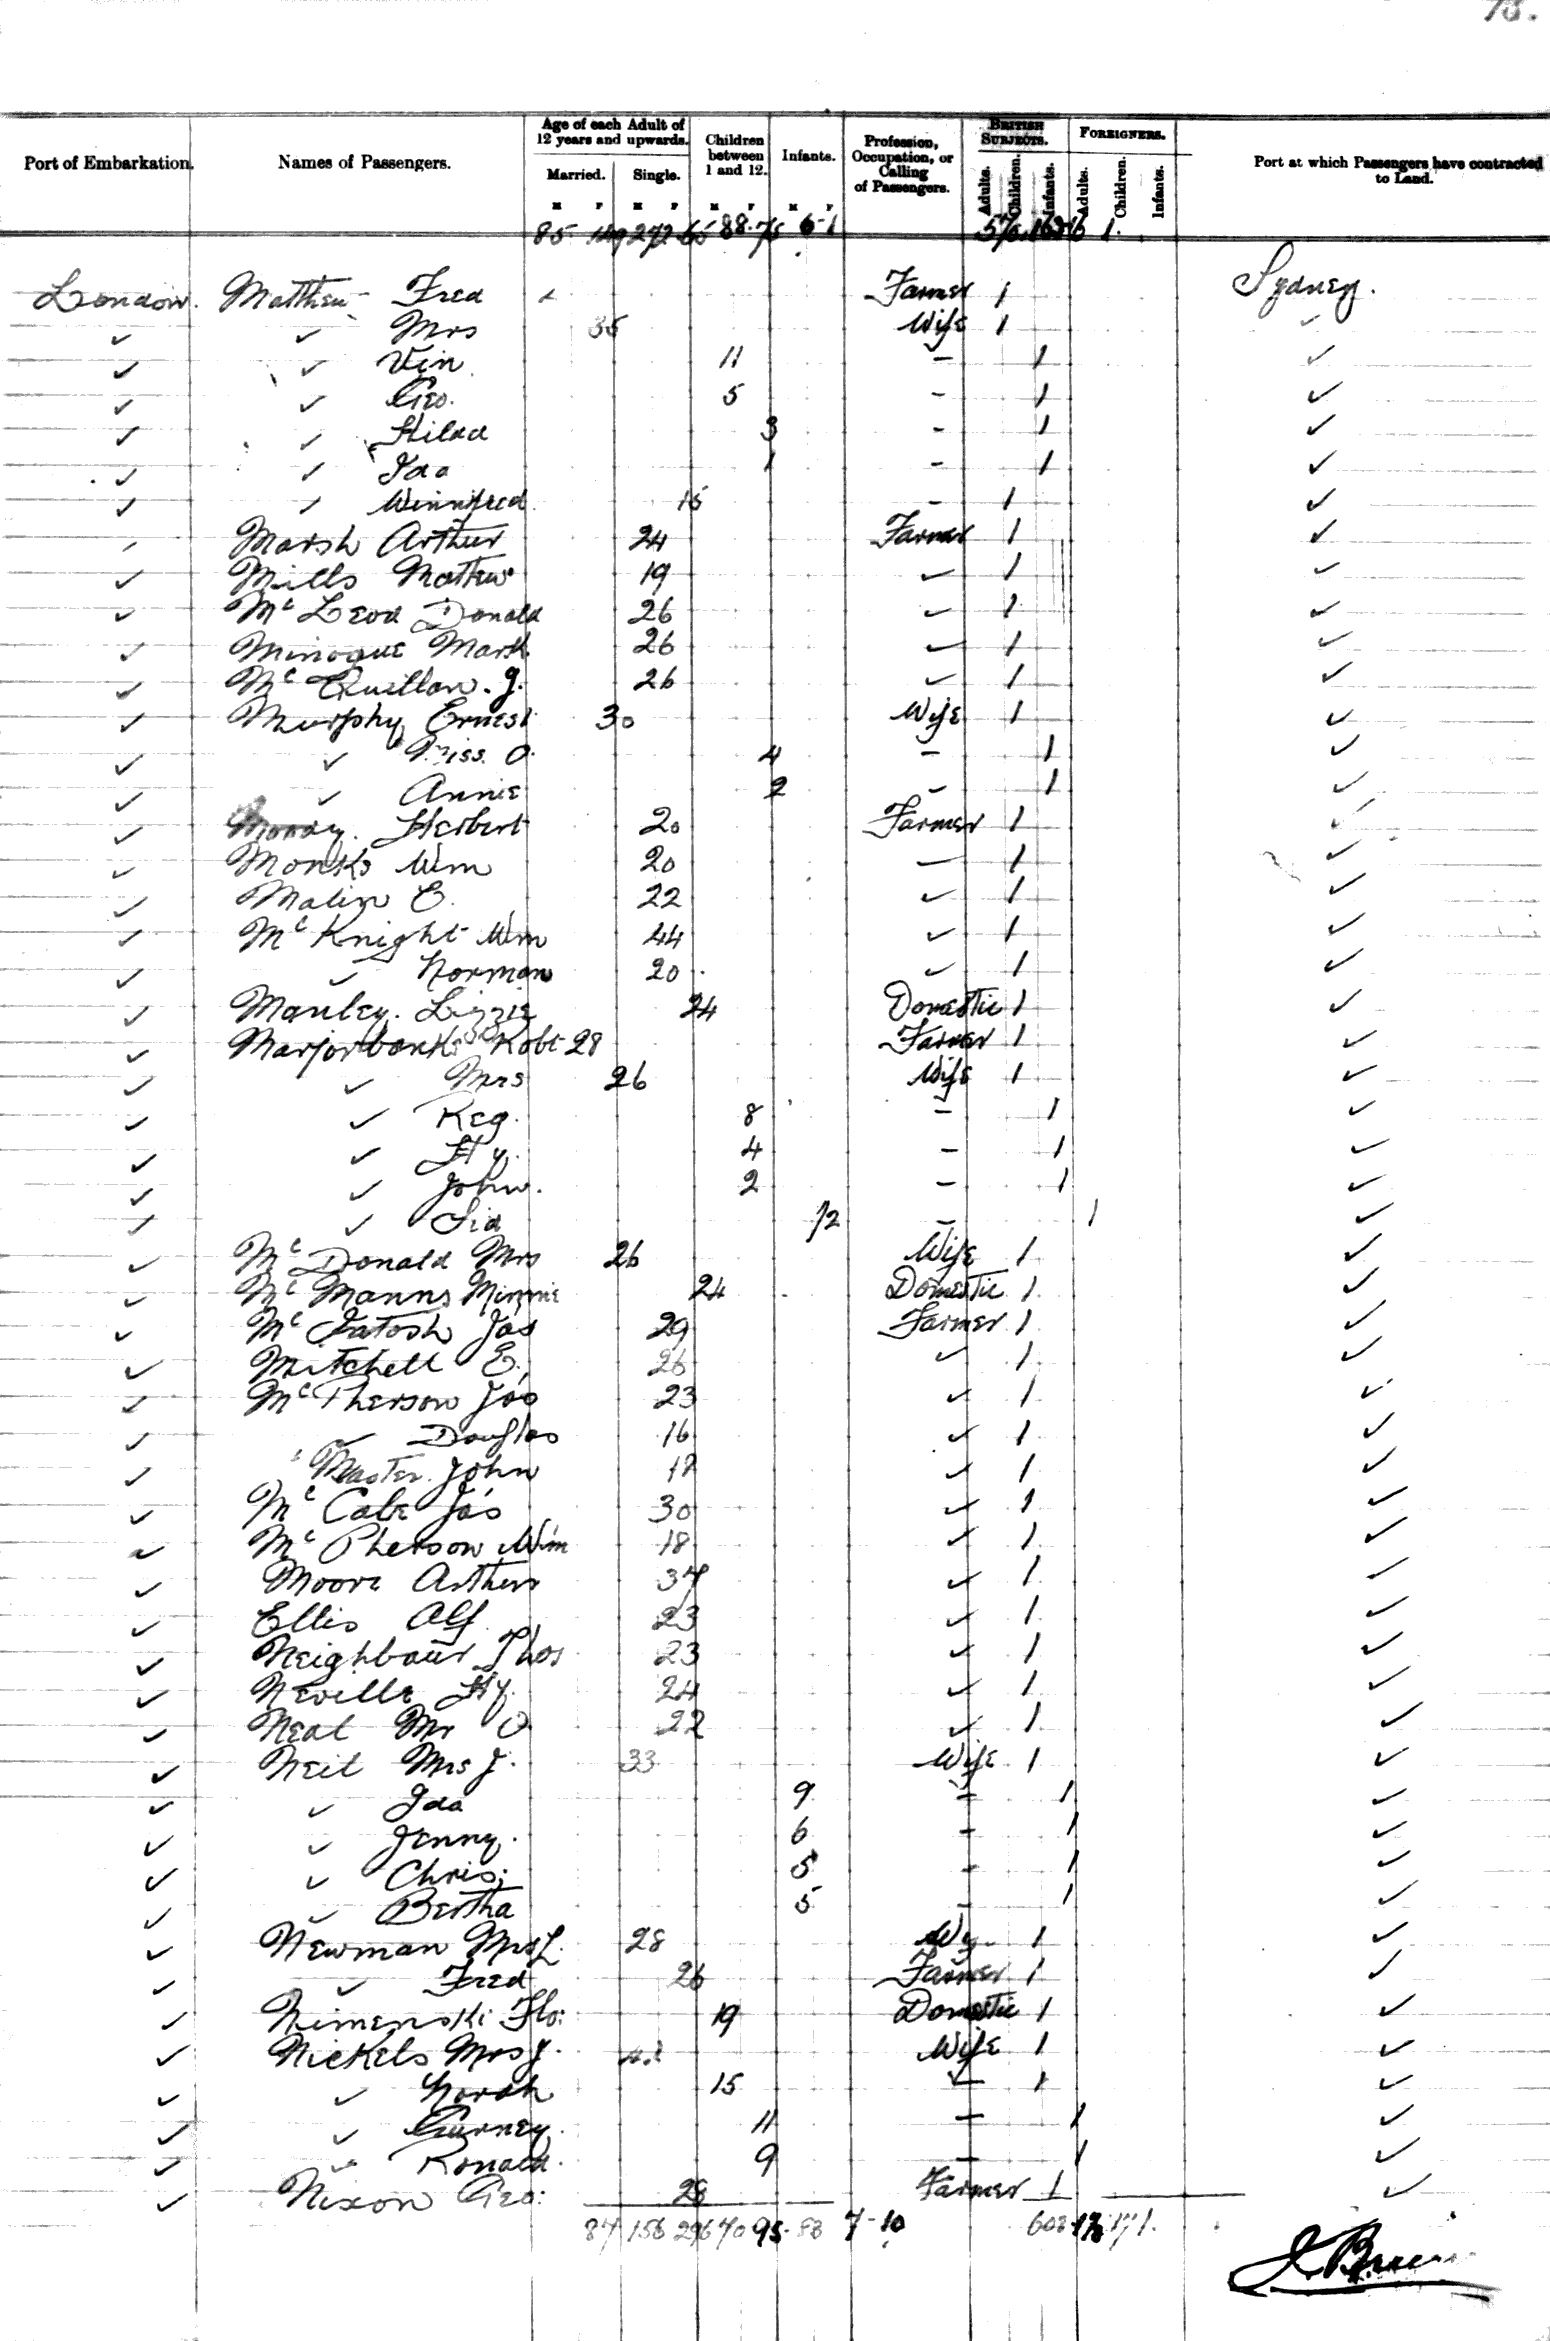 78.
Port of Embarkation. Names of Passengers. Age of each Adult of 12 years and upwards. Married. Single. Children between 1 and 12. Infants. Profession, Occupation, or Calling of Passengers. BRITISH SUBJECTS. Adults. Children. Infants. FOREIGNERS. Adults. Children. Infants. Port at which Passengers have contracted to Land.
M F M F M F M F
85 149 272 65 88 75 6-1 1
London. Matthew Fred Farmer 1 Sydney.
✓ ✓ Mrs 35 Wife 1 ✓
✓ ✓ Vin 11 - 1 ✓
✓ ✓ Geo. 5 - 1 ✓
✓ ✓ Hilda 3 - 1 ✓
✓ ✓ Ida 1 - 1 ✓
✓ ✓ Winnifred 15 - 1 ✓
✓ Marsh Arthur 24 Farmer 1 ✓
✓ Mills Mathew 19 ✓ 1 ✓
✓ Mc Leod Donald 26 ✓ 1 ✓
✓ Minogue Mark 26 ✓ 1 ✓
✓ Mc Quillan. J. 26 ✓ 1 ✓
✓ Murphy Ernest 30 Wife 1 ✓
✓ ✓ Miss. O. 4 - 1 ✓
✓ ✓ Annie 2 - 1 ✓
✓ Moody. Herbert 20 Farmer 1 ✓
✓ Monks Wm 20 ✓ 1 ✓
✓ Malin E. 22 ✓ 1 ✓
✓ Mc Knight Wm 44 ✓ 1 ✓
✓ ✓ Norman 20 ✓ 1 ✓
✓ Manley. Lizzie 24 Domestic 1 ✓
✓ Marjoribanks Robt 28 Farmer 1 ✓
✓ ✓ Mrs 26 Wife 1 ✓
✓ ✓ Reg. 8 - 1 ✓
✓ ✓ Hy. 4 - 1 ✓
✓ ✓ John. 2 - 1 ✓
✓ ✓ Sid - 1 ✓
✓ Mc Donald Mrs 26 Wife 1 ✓
✓ Mc Manns Minnie 24 Domestic 1 ✓
✓ Mc Intosh Jas 29 Farmer 1 ✓
✓ Mitchell E. 26 ✓ 1 ✓
✓ Mc Pherson Jas 23 ✓ 1 ✓
✓ ✓ Douglas 16 ✓ 1 ✓
✓ Master. John ✓ 1 ✓
✓ Mc Cabe Jas 30 ✓ 1 ✓
✓ Mc Pherson Wm 18 ✓ 1 ✓
✓ Moore Arthur ✓ 1 ✓
✓ Ellis Alf 23 ✓ 1 ✓
✓ Neighbour Thos 23 ✓ 1 ✓
✓ Neville Hy. 24 ✓ 1 ✓
✓ Neal Mr O 22 ✓ 1 ✓
✓ Neil Mrs J. 33 Wife 1 ✓
✓ ✓ Ida 9 - 1 ✓
✓ ✓ Jenny. 6 - 1 ✓
✓ ✓ Chris; 5 - 1 ✓
✓ ✓ Bertha 5 - 1 ✓
✓ Newman Mrs L. 28 1 ✓
✓ ✓ Fred 26 Farmer 1 ✓
✓ Nimenski Flo: 19 Domestic 1 ✓
✓ Nickels Mrs J. Wife 1 ✓
✓ ✓ Norah 15 ✓ 1 ✓
✓ ✓ Gurney. 11 - 1 ✓
✓ ✓ Ronald. 9 - 1 ✓
✓ Nixon Geo: 28 Farmer 1 ✓
87 156 296 70 95 83 7-10 608